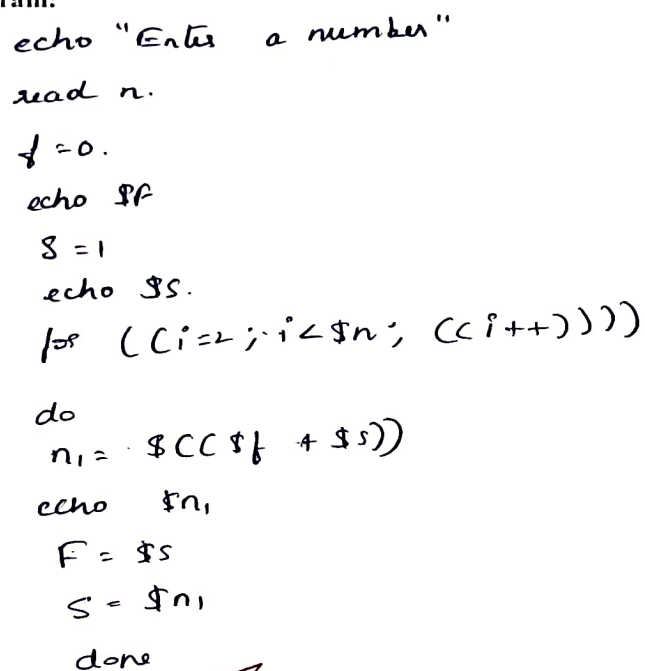 echo "Enter a number"
read n.
f=0.
echo $f
S=1
echo $S.
for ((i=2; i<$n; ((i++))))
do
n1= $(($f + $s))
echo $n1
F = $S
S = $n1
done